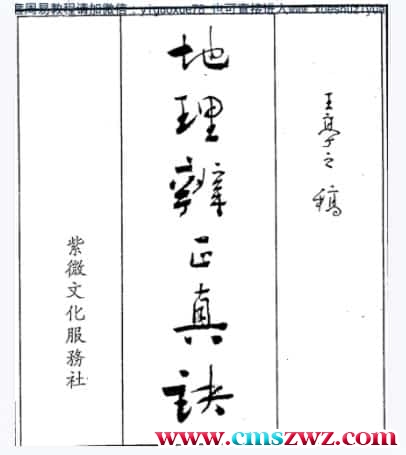 高周易教程请加微信：yiguoxue78 也可直接进入www xueshuziyua
王亭之稿
地理辨正真訣
紫微文化服務社
www.cmszwz.com